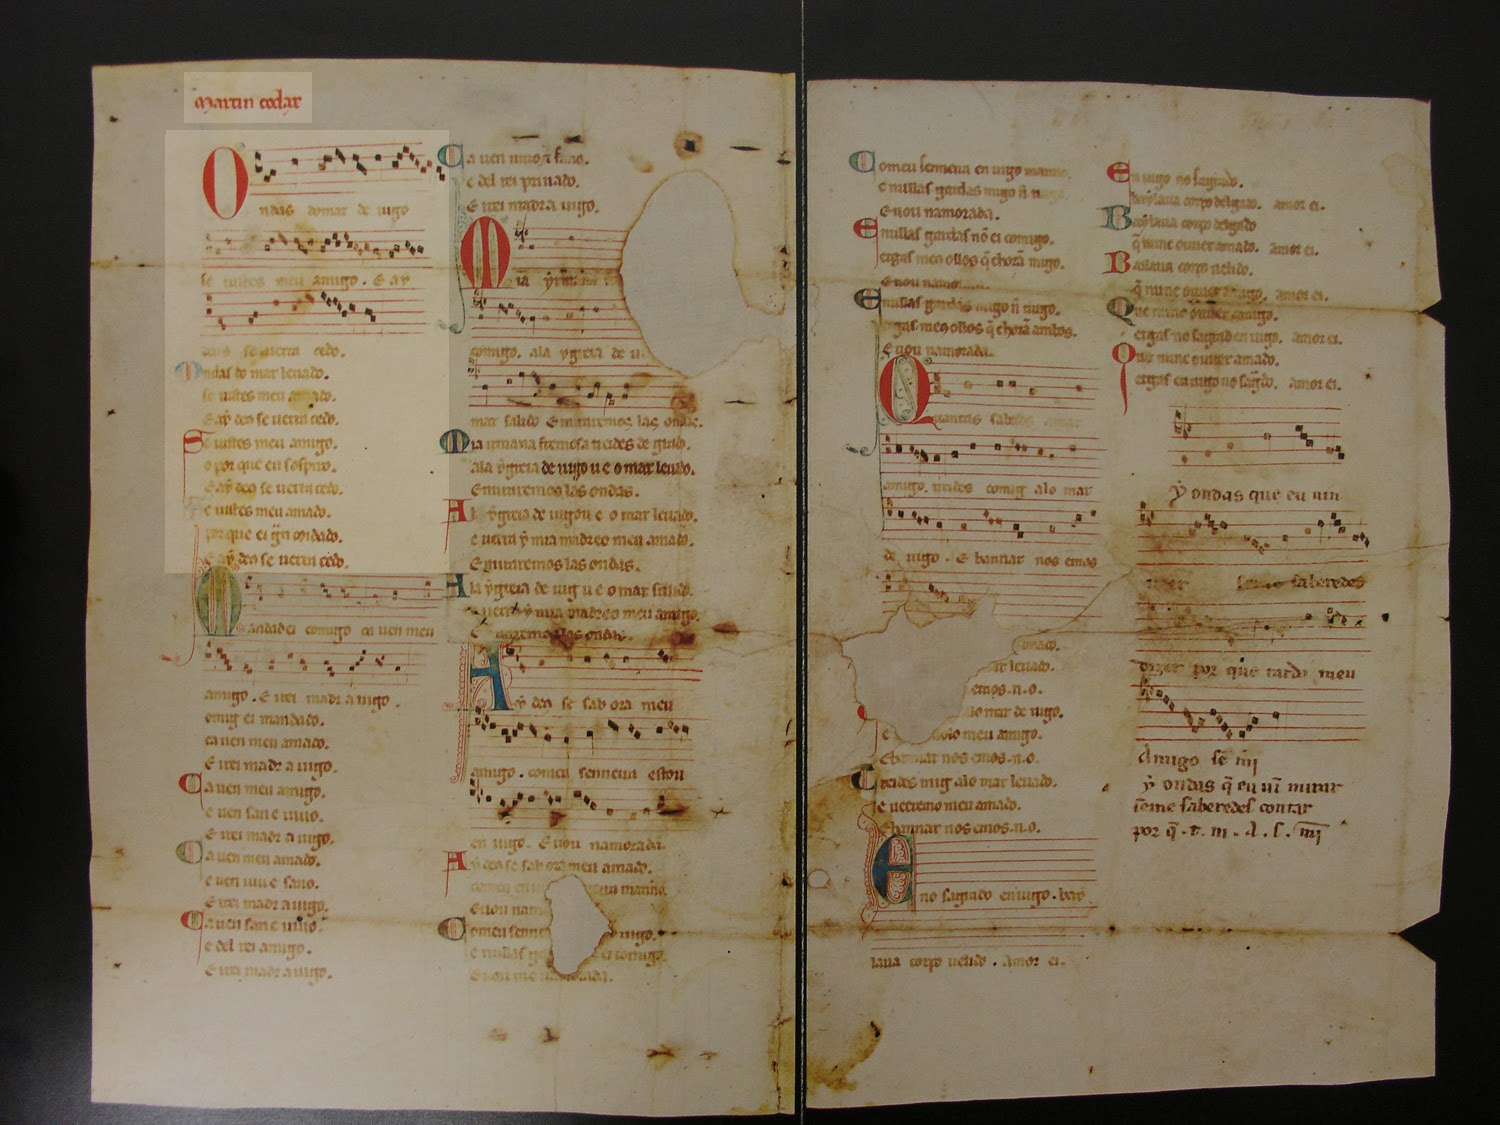 martin codax
ndas do mar de uigo
se uistes meu amigo. E ay
deus se uerra cedo.
Ondas do mar leuado.
se uistes meu amado.
E ay deo se uerra cedo.
Se uistes meu amigo.
o por que eu sospiro.
E ay deo se uerra cedo.
Se uistes meu amado.
por que ei gñ coidado.
E ay deo se uerra cedo.
Mandadei comigo ca uen meu
amigo. E irei madr a uigo.
comig ei mandado.
ca uen meu amado.
E irei madr a uigo.
Ca uen meu amigo.
e uen san e uiuo.
E irei madr a uigo.
Ca uen meu amado.
e uen uiu e sano.
E irei madr a uigo.
Ca uen san e uiuo.
e del rei amigo.
E irei madr a uigo.
Ca uen uiuo e sano.
e del rei priuado.
E irei madr a uigo.
Mia yrmana
comigo. ala ygreia de
mar salido E miraremos las ondas.
Mia irmana fremosa treides de grado.
ala ygreia de uigo u e o mar leuado.
E miraremos las ondas.
A la ygreia de uigo u e o mar leuado.
e uerra y mia madre o meu amado.
E miraremos las ondas.
A la ygreia de uig u e o mar salido.
e uerra y mia madre o meu amigo.
E miraremos las ondas.
Ay deo se sab ora meu
amigo. comeu senneira estou
en uigo. E uou namorada.
Ay deo se sab ora meu amado.
comeu en manno.
E uou nam
Comeu senne uigo.
e nullas g ei comigo.
E uou me namorada.
Comeu senneira en uigo manno,
e nullas gardas migo ñ
E uou namorada.
E nullas gardas nõ ei comigo.
ergas meo ollos q̃ choram migo.
E uou namo
E nullas gardas migo ñ trago.
ergas meo ollos q̃ choram ambos.
E uou namorada.
Quantas sabedes amar
amigo. treides comig a lo mar
de uigo. E bannar nos emos
mado.
ar leuado.
emos.n.o.
lo mar de uigo.
e meu amigo.
E bannar nos emos.n.o.
Treides mig a lo mar leuado.
e ueeremo meu amado.
E bannar nos emos.n.o.
E no sagrado en uigo. bay
laua corpo uelido. amor ei.
En uigo no sagrado.
baylaua corpo delgado. amor ei.
Baylaua corpo delgado
q̃ nunc ouuer amado. amor ei.
Bailaua corpo uelido.
q̃ nunc ouuer amigo. amor ei.
Que nunc ouuer amigo.
ergas no sagrad en uigo. amor ei.
Que nunc ouuer amado.
ergas en uigo no sagrado. amor ei.
Ay ondas que eu uin
ueer se me saberedes
dizer por que tarda meu
Amigo se mi
Ay ondas q̃ eu uĩ mirar
se me saberedes contar
por q̃ . t . m . A . s . mi